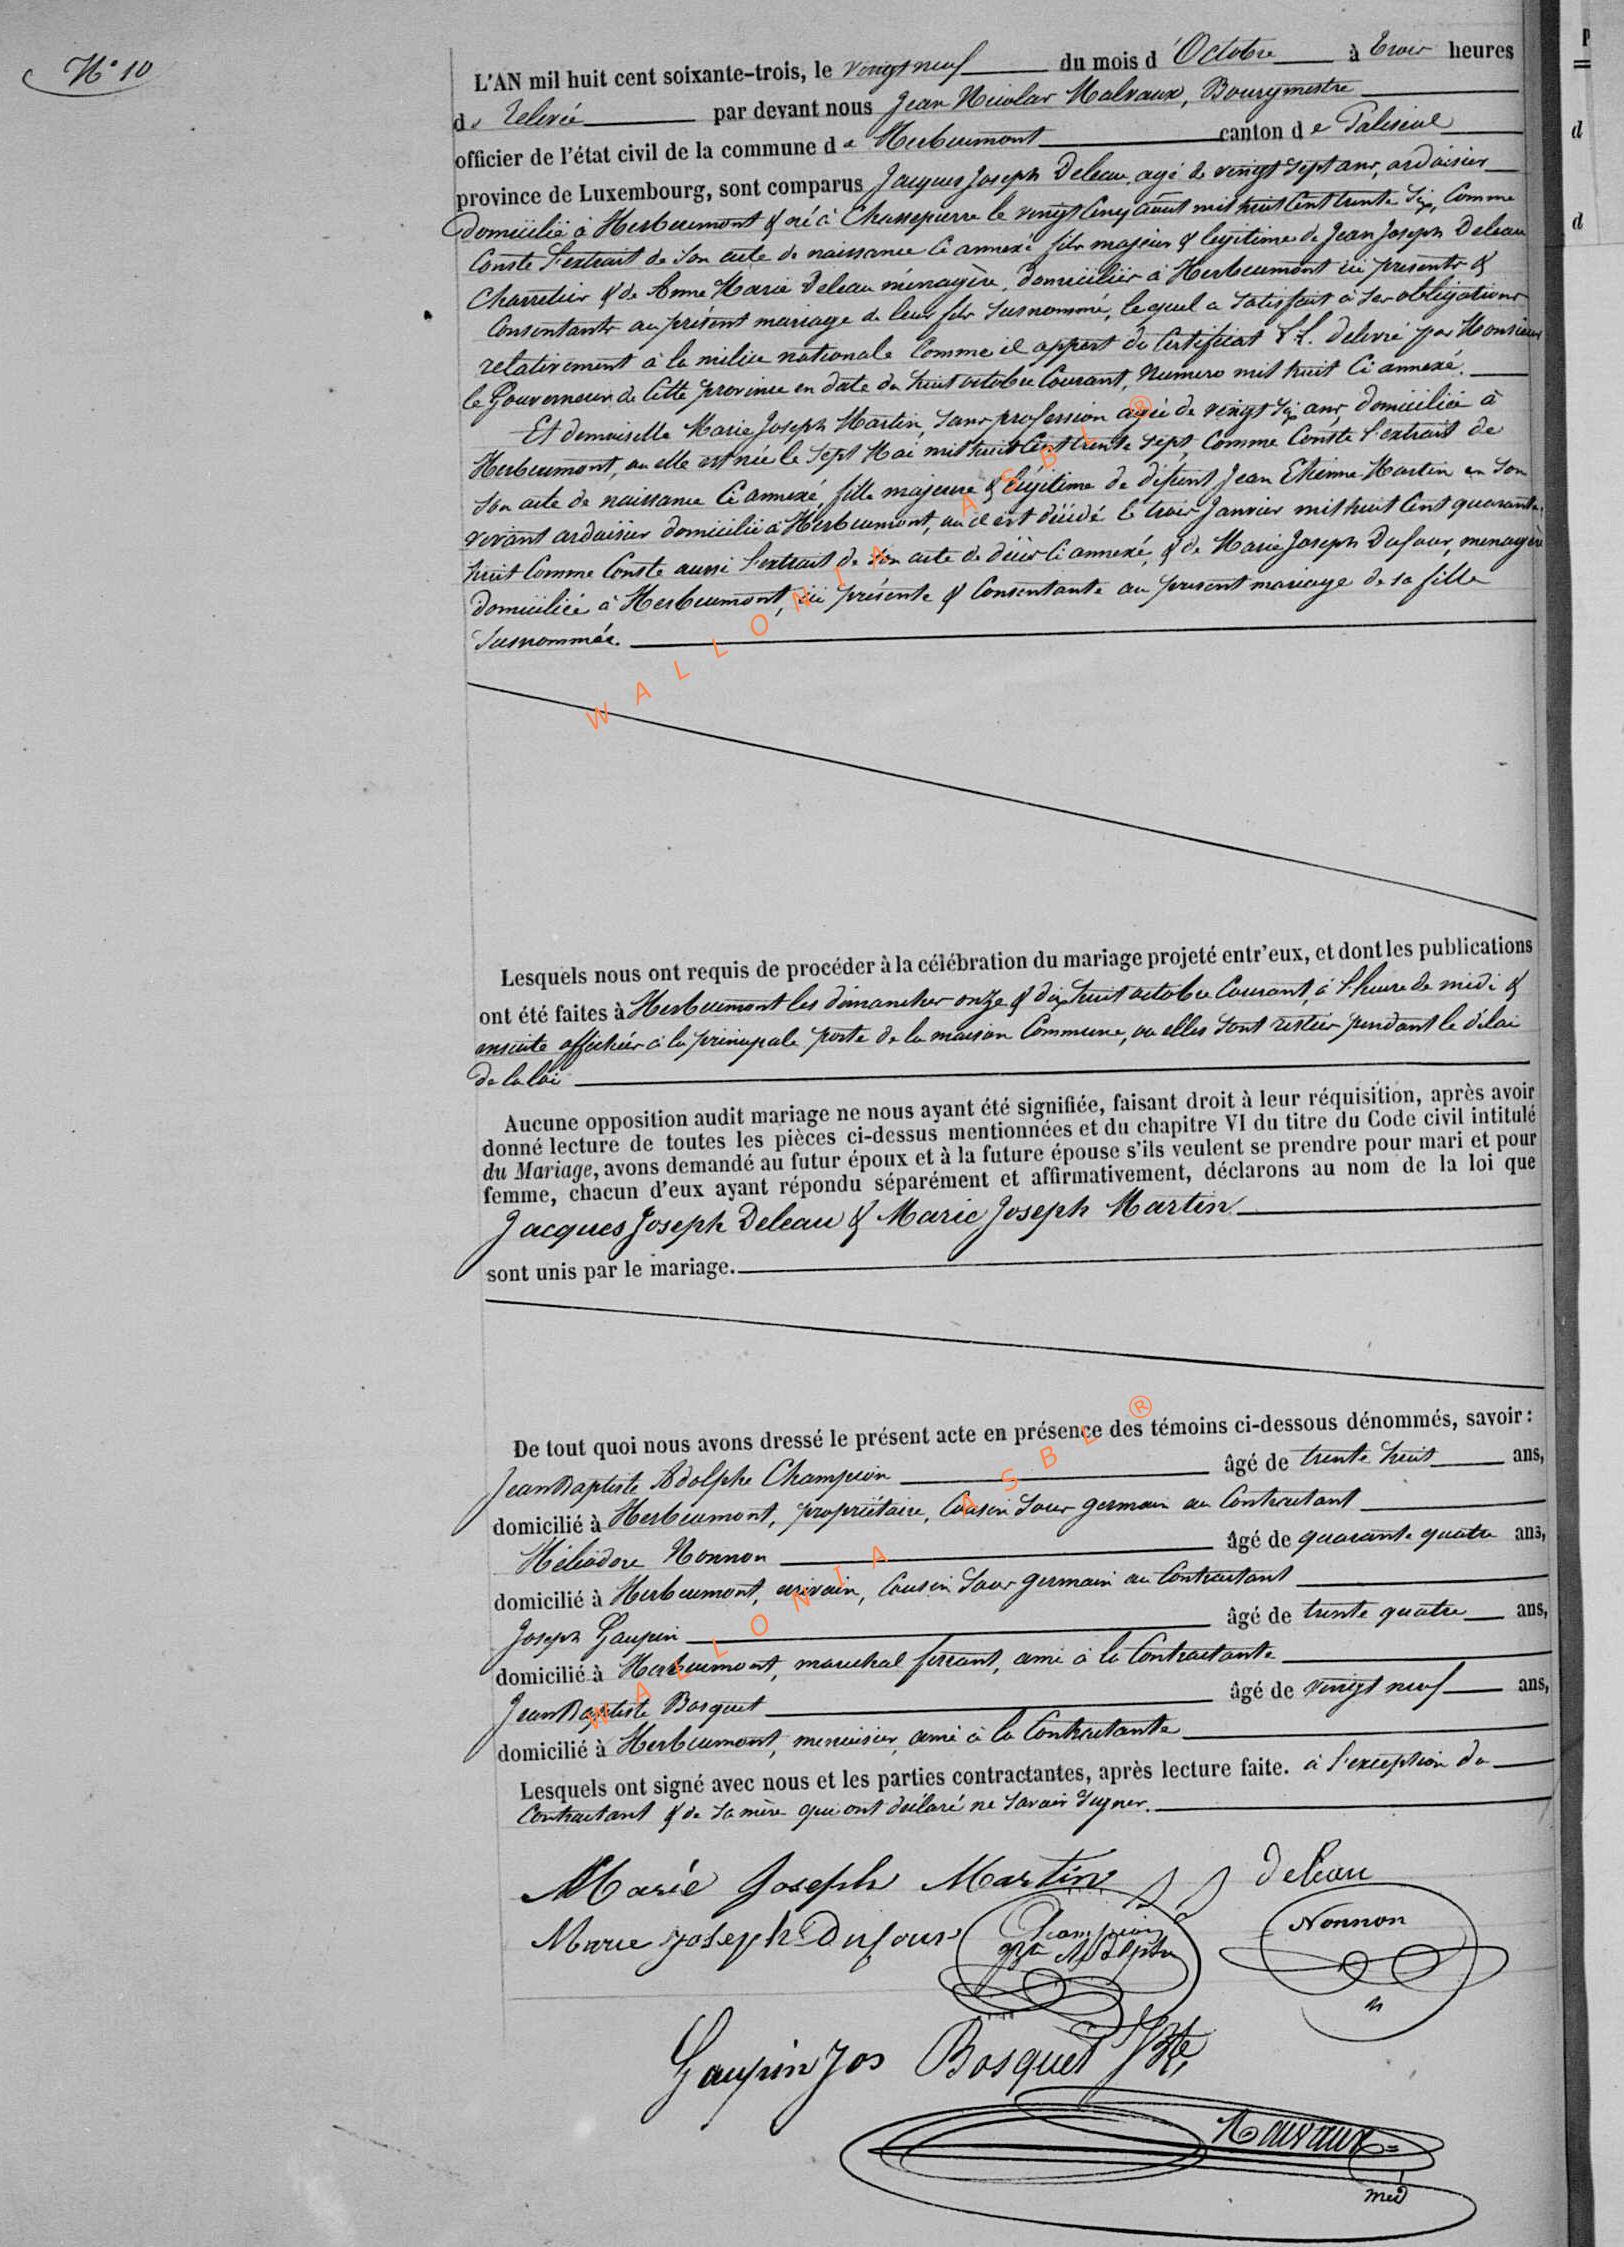 N° 10
L'AN mil huit cent soixante-trois, le vingt neuf du mois d'Octobre à trois heures
de relevée par devant nous Jean Nicolas Malvaux, Bourgmestre
officier de l'état civil de la commune de Herbeumont canton de Paliseul
province de Luxembourg, sont comparus Jacques Joseph Deleau, agé de vingt sept ans, ardoisier
domicilié à Herbeumont & né à Chassepierre le vingt Cinq août mil huit Cent trente Six, Comme
Conste l'extrait de Son acte de naissance Ci annexé fils majeur & legitime de Jean Joseph Deleau
Charretier & de Anne Marie Deleau ménagère, domiciliés à Herbeumont ici présents &
Consentants au présent mariage de leur fils Susnommé, lequel a Satisfait à Ses obligations
relativement à la milice nationale Comme il appert du Certificat L.L. delivré par Monsieur
le Gouverneur de Cette province en date du huit octobre Courant, Numero mil huit Ci annexé.
Et demoiselle Marie Joseph Martin Sans profession agée de vingt Six ans, domiciliée à
Herbeumont, ou elle est née le Sept Mai mil huit Cent trente Sept, Comme Conste l'extrait de
Son acte de naissance Ci annexé, fille majeure & legitime de défunt Jean Etienne Martin en Son
vivant ardoisier domicilié à Herbeumont, ou il est décédé le trois Janvier mil huit Cent quarante
huit Comme Conste aussi l'extrait de Son acte de décès Ci annexé, & de Marie Joseph Dufour, menagère
domiciliée à Herbeumont, ici présente & Consentante au présent mariage de sa fille
Susnommée.
Lesquels nous ont requis de procéder à la célébration du mariage projeté entr'eux, et dont les publications
ont été faites à Herbeumont les dimanches onze & dix huit octobre Courant, à l'heure de midi &
ensuite affichées à la principale porte de la maison Commune, ou elles Sont restées pendant le délai
de la loi
Aucune opposition audit mariage ne nous ayant été signifiée, faisant droit à leur réquisition, après avoir
donné lecture de toutes les pièces ci-dessus mentionnées et du chapitre VI du titre du Code civil intitulé
du Mariage, avons demandé au futur époux et à la future épouse s'ils veulent se prendre pour mari et pour
femme, chacun d'eux ayant répondu séparément et affirmativement, déclarons au nom de la loi que
Jacques Joseph Deleau & Marie Joseph Martin
sont unis par le mariage.
De tout quoi nous avons dressé le présent acte en présence des témoins ci-dessous dénommés, savoir :
Jean Baptiste Adolphe Champion âgé de trente huit ans,
domicilié à Herbeumont, propriétaire, Cousin Sous germain au Contractant
Héliodore Nonnon âgé de quarante quatre ans,
domicilié à Herbeumont, écrivain, Cousin Sous germain au Contractant
Joseph Gaupin âgé de trente quatre ans,
domicilié à Herbeumont, marechal ferrant, ami à la Contractante
Jean Baptiste Bosquet âgé de vingt neuf ans,
domicilié à Herbeumont, menuisier, ami à la Contractante
Lesquels ont signé avec nous et les parties contractantes, après lecture faite. à l'exception du
Contractant & de Sa mère qui ont déclaré ne Savoir Signer.
Marie Joseph Martin J J deleau
Marie joseph Dufour Champion Adolphe Nonnon
Gaupin Jos Bosquet JBte
Malvaux
WALLONIA ASBL ®
WALLONIA ASBL ®
P
d
d